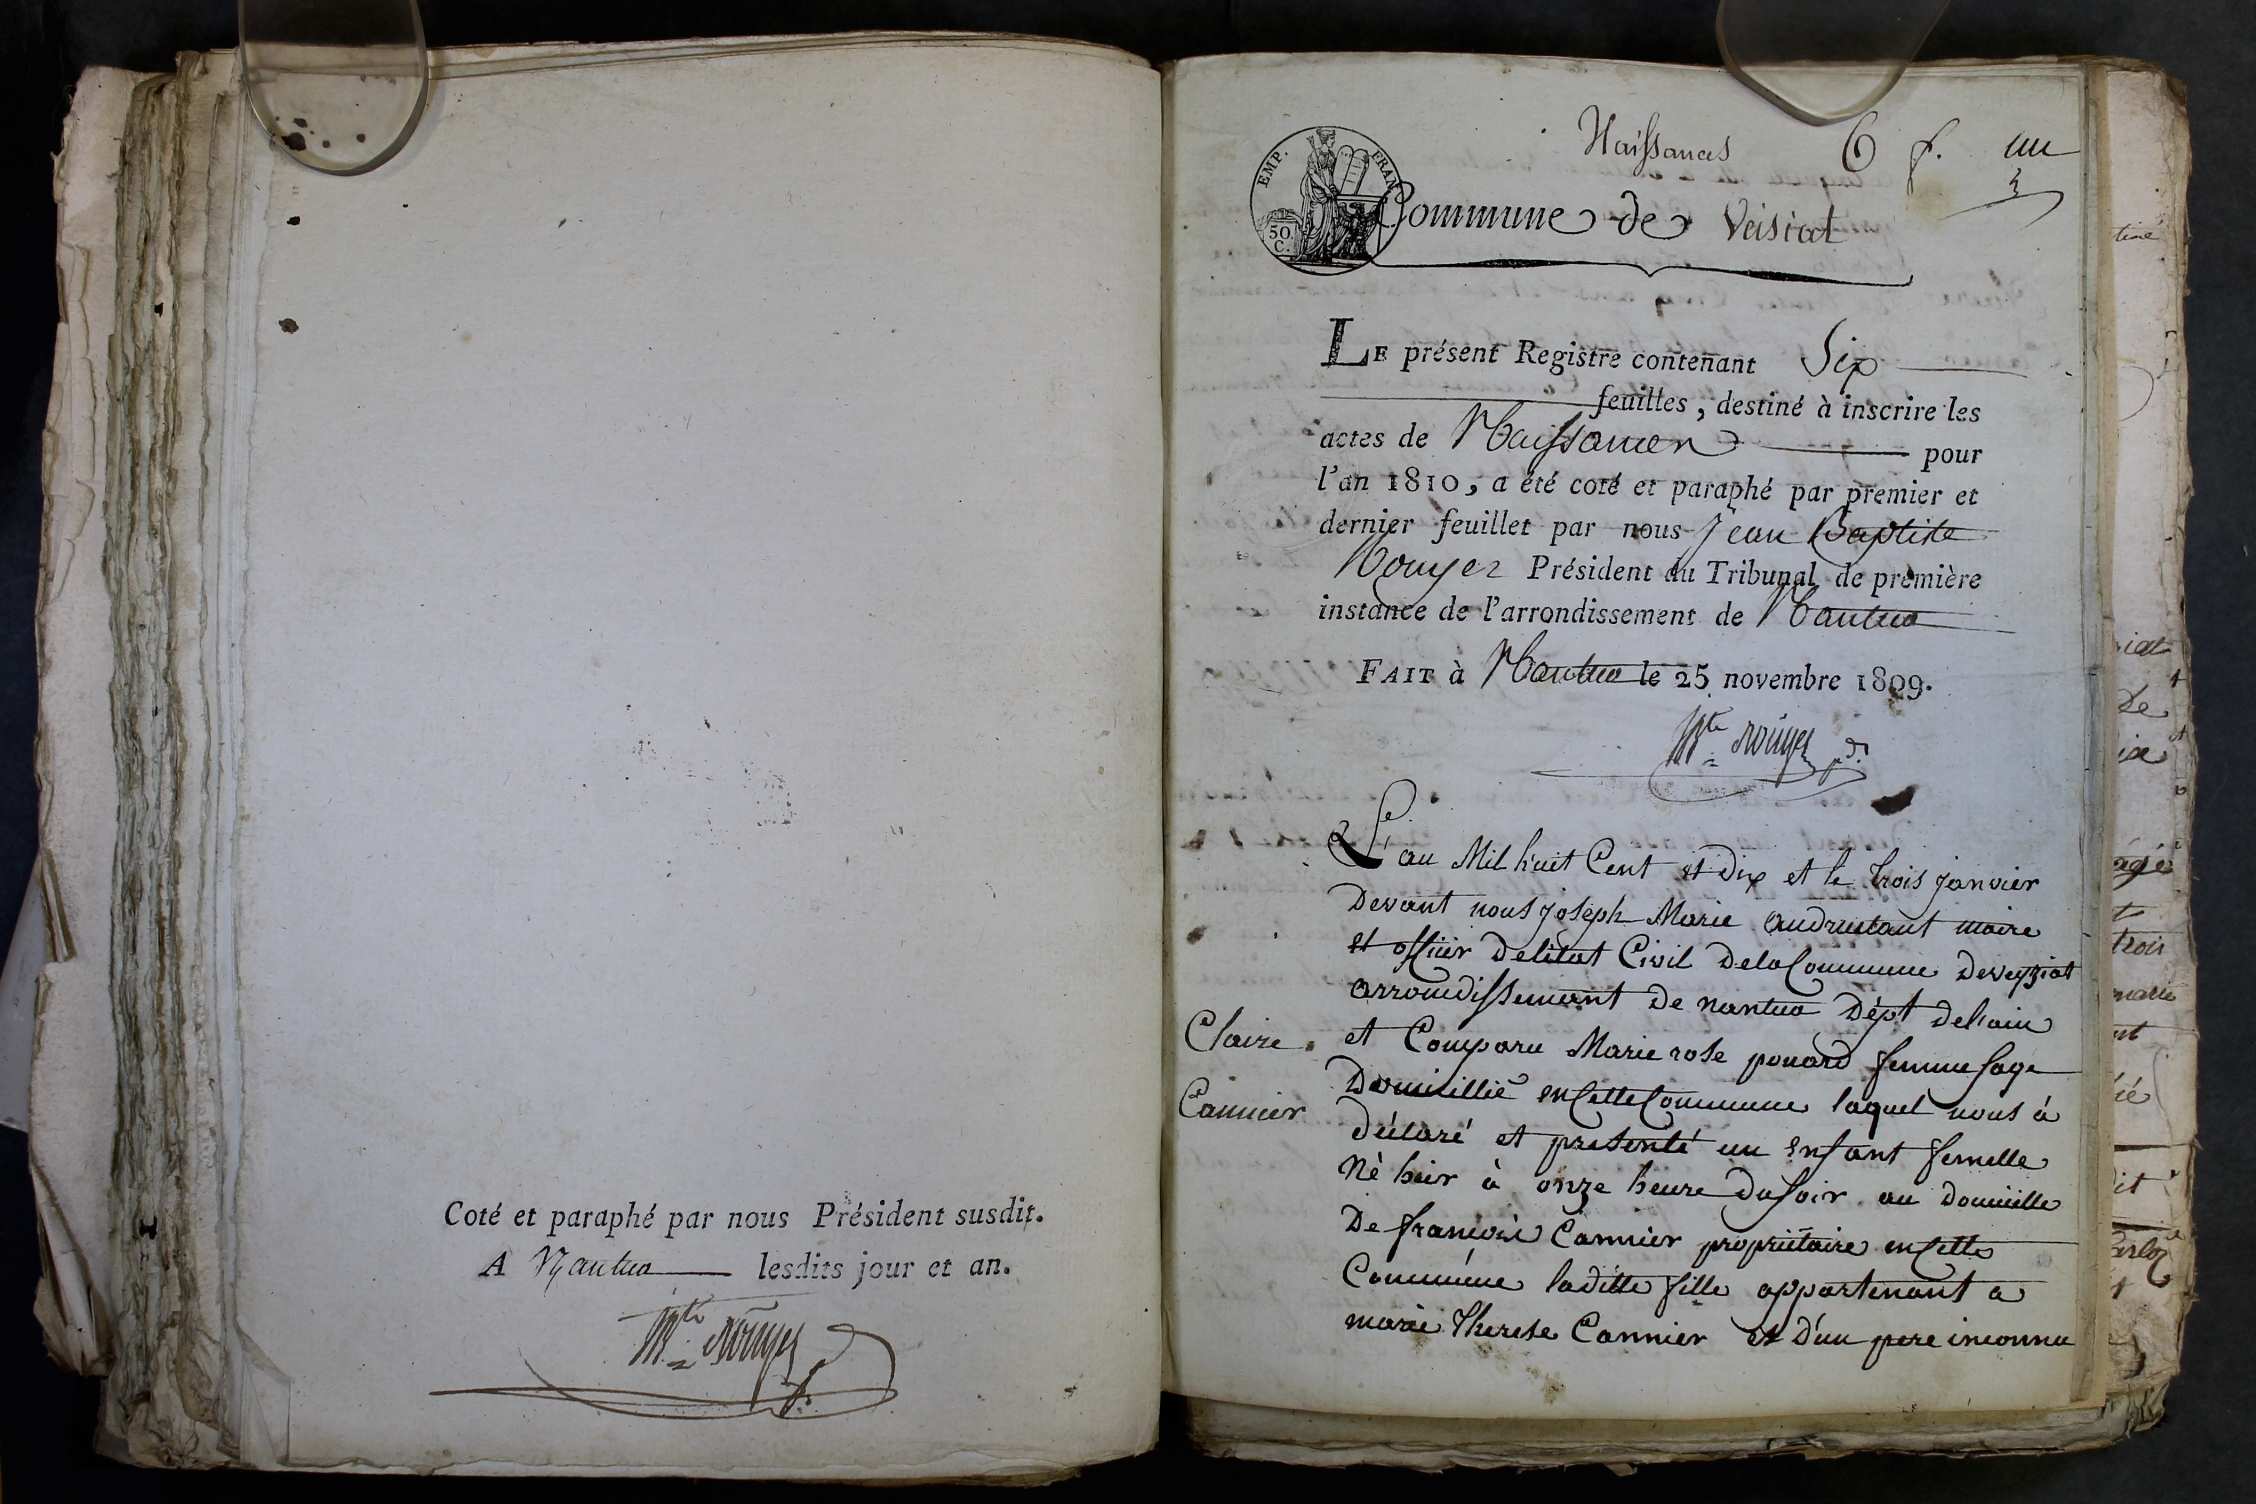 Coté et paraphé par nous Président susdit.
A Nantua lesdits jour et an.
Bte Rouyer
Naissances 6 f. un
EMP. FRAN
50. C.
Commune de Veisiat
LE présent Registre contenant Six
feuilles, destiné à inscrire les
actes de Naissances pour
l'an 1810, a été coté et paraphé par premier et
dernier feuillet par nous Jean Baptiste
Rouyer Président du Tribunal de première
instance de l'arrondissement de Nantua
FAIT à Nantua le 25 novembre 1809.
Bte Rouyer pdt
L'an Mil huit Cent et Dix et le trois janvier
Devant nous joseph Marie maire
et officier Deletat Civil dela Commune deveyziat
arrondissement De nantua Dépt delain
Claire
Cannier
et Comparu Marie rose ponard femme sage
Domicillié en Cette Commune laquel nous à
déclaré et presenté un enfant femelle
Né hier à onze heure du soir au domicille
De françois Cannier propriétaire en Cette
Commune laditte fille appartenant a
marie Therese Cannier et D'un pere inconnu